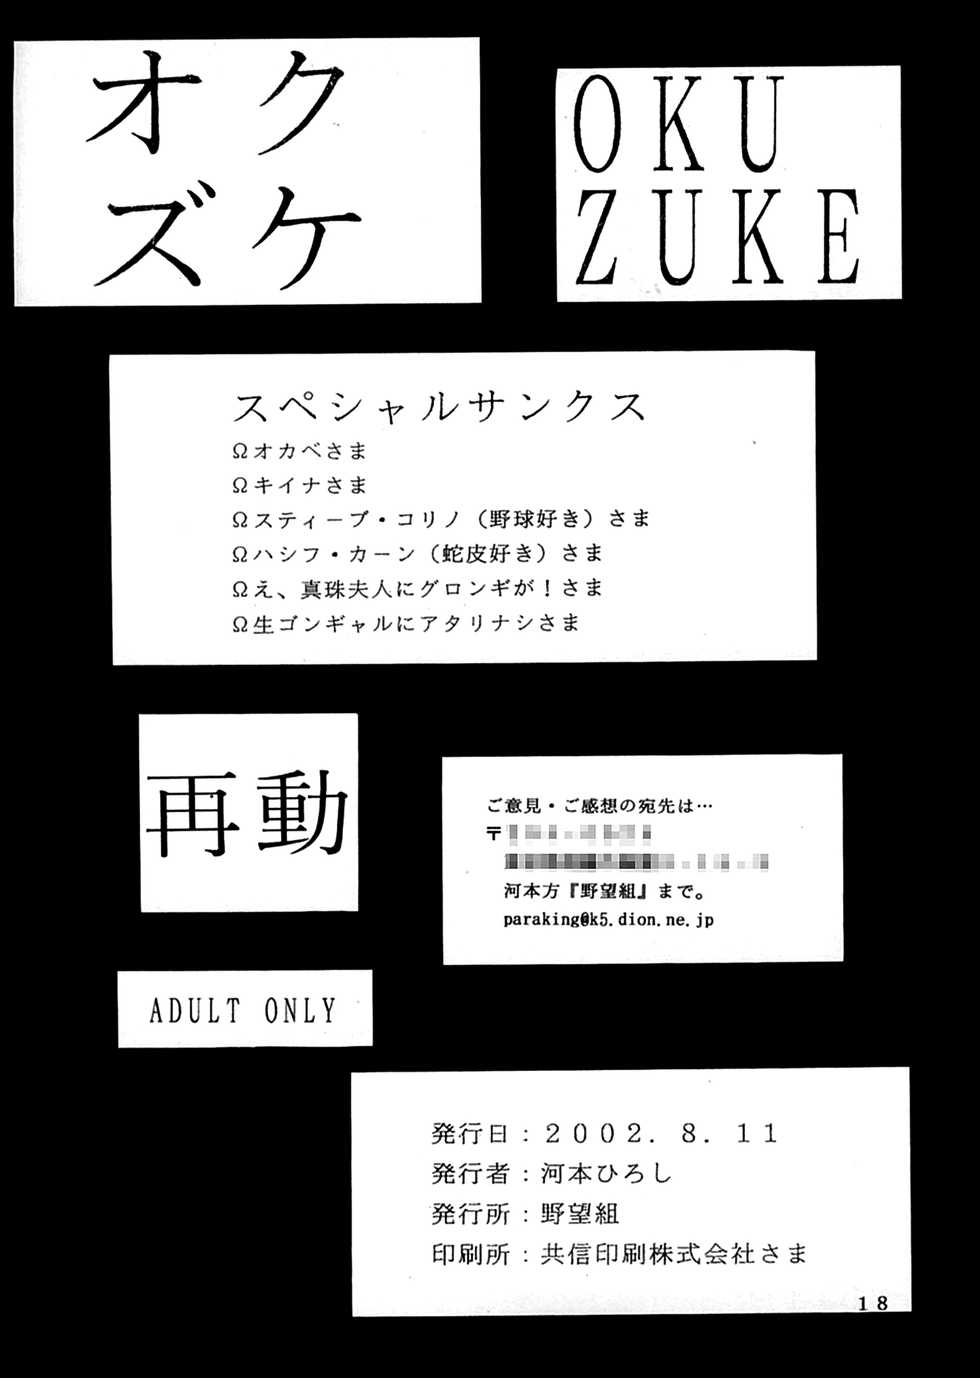 オク
ズケ
OKU
ZUKE
スペシャルサンクス
Ωオカベさま
Ωキイナさま
Ωスティーブ・コリノ（野球好き）さま
Ωハシフ・カーン（蛇皮好き）さま
Ωえ、真珠夫人にグロンギが！さま
Ω生ゴンギャルにアタリナシさま
再動
ご意見・ご感想の宛先は…
〒
河本方『野望組』まで。
paraking@k5.dion.ne.jp
ADULT ONLY
発行日：２００２．８．１１
発行者：河本ひろし
発行所：野望組
印刷所：共信印刷株式会社さま
18